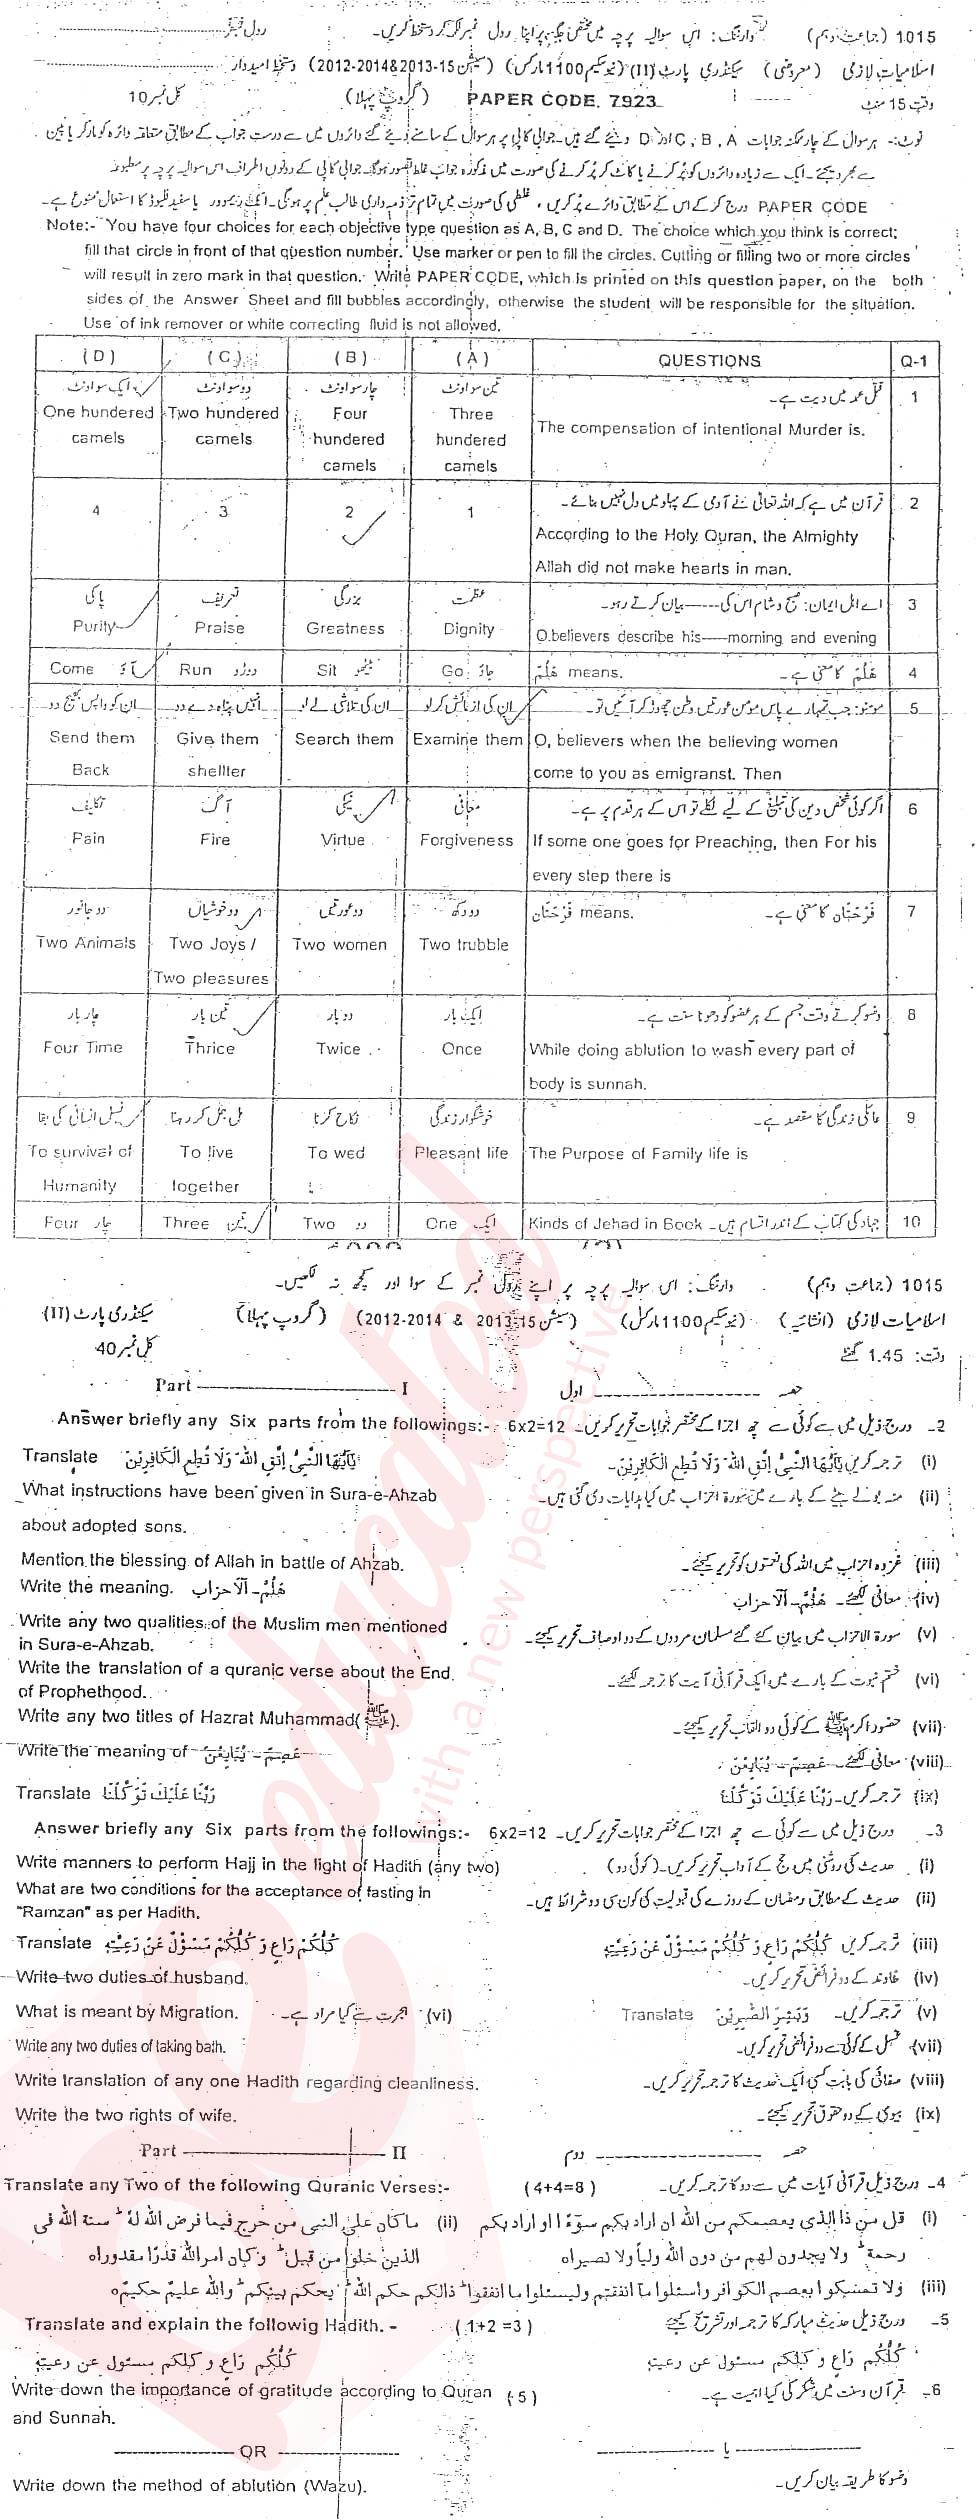 1015 (جماعت دہم) وارننگ: اس سوالیہ پرچہ میں مختص جگہ پر اپنا رول نمبر لکھ کر دستخط کریں۔ رول نمبر
اسلامیات لازمی (معروضی) سیکنڈری پارٹ (II) (نیو سکیم 1100 مارکس) (سیشن 15-2013&2014-2012) دستخط امیدوار
وقت 15 منٹ PAPER CODE. 7923 (گروپ پہلا) کل نمبر 10
نوٹ:- ہر سوال کے چار ممکنہ جوابات A ، B ، C اور D دیئے گئے ہیں۔ جوابی کاپی پر ہر سوال کے سامنے دیئے گئے دائروں میں سے درست جواب کے مطابق متعلقہ دائرہ کو مارکر یا پین
سے بھر دیجئے۔ ایک سے زیادہ دائروں کو پُر کرنے یا کاٹ کر پُر کرنے کی صورت میں مذکورہ جواب غلط تصور ہوگا۔ جوابی کاپی کے دونوں اطراف اس سوالیہ پرچہ پر مطبوعہ
PAPER CODE درج کر کے اس کے مطابق دائرے پُر کریں، غلطی کی صورت میں تمام تر ذمہ داری طالب علم پر ہوگی۔ انک ریموور یا سفید فلیوڈ کا استعمال ممنوع ہے۔
Note:- You have four choices for each objective type question as A, B, C and D. The choice which you think is correct;
fill that circle in front of that question number. Use marker or pen to fill the circles. Cutting or filling two or more circles
will result in zero mark in that question. Write PAPER CODE, which is printed on this question paper, on the both
sides of the Answer Sheet and fill bubbles accordingly, otherwise the student will be responsible for the situation.
Use of ink remover or white correcting fluid is not allowed.
(D) (C) (B) (A) QUESTIONS Q-1
ایک سو اونٹ دو سو اونٹ چار سو اونٹ تین سو اونٹ قتل عمد میں دیت ہے۔ 1
One hundered camels Two hundered camels Four hundered camels Three hundered camels The compensation of intentional Murder is.
4 3 2 1 قرآن میں ہے کہ اللہ تعالیٰ نے آدمی کے پہلو میں دل نہیں بنائے۔ 2
According to the Holy Quran, the Almighty
Allah did not make hearts in man.
پاکی تعریف بزرگی عظمت اے اہل ایمان: صبح و شام اس کی ----- بیان کرتے رہو۔ 3
Purity Praise Greatness Dignity O.believers describe his----morning and evening
Come آؤ Run دوڑو Sit بیٹھو Go جاؤ هَلُمَّ means. هَلُمَّ کا معنی ہے۔ 4
ان کو واپس بھیج دو انہیں پناہ دے دو ان کی تلاشی لے لو ان کی آزمائش کر لو مومنو: جب تمہارے پاس مومن عورتیں وطن چھوڑ کر آئیں تو۔ 5
Send them Back Give them shellter Search them Examine them O, believers when the believing women
come to you as emigranst. Then
تکلیف آگ نیکی معافی اگر کوئی شخص دین کی تبلیغ کے لیے نکلے تو اس کے ہر قدم پر ہے۔ 6
Pain Fire Virtue Forgiveness If some one goes for Preaching, then For his
every step there is
دو جانور دو خوشیاں دو عورتیں دو دکھ فَرْحَتَان means. فَرْحَتَان کا معنی ہے۔ 7
Two Animals Two Joys / Two pleasures Two women Two trubble
چار بار تین بار دو بار ایک بار وضو کرتے وقت جسم کے ہر عضو کو دھونا سنت ہے۔ 8
Four Time Thrice Twice Once While doing ablution to wash every part of
body is sunnah.
نسل انسانی کی بقا مل جل کر رہنا نکاح کرنا خوشگوار زندگی عائلی زندگی کا مقصد ہے۔ 9
To survival of Humanity To live together To wed Pleasant life The Purpose of Family life is
Four چار Three تین Two دو One ایک Kinds of Jehad in Book جہاد کی کتاب کے اندر اقسام ہیں۔ 10
1015 (جماعت دہم) وارننگ: اس سوالیہ پرچہ پر اپنے رول نمبر کے سوا اور کچھ نہ لکھیں۔
اسلامیات لازمی (انشائیہ) (نیو سکیم 1100 مارکس) (سیشن 15-2013 & 2014-2012) (گروپ پہلا) سیکنڈری پارٹ (II)
وقت: 1.45 گھنٹے کل نمبر 40
Part I حصہ اول
Answer briefly any Six parts from the followings:- 6x2=12 2- درج ذیل میں سے کوئی سے چھ اجزا کے مختصر جوابات تحریر کریں۔
Translate يٰۤاَيُّهَا النَّبِىُّ اتَّقِ اللّٰهَ وَلَا تُطِعِ الْكَافِرِيْنَ (i) ترجمہ کریں يٰۤاَيُّهَا النَّبِىُّ اتَّقِ اللّٰهَ وَلَا تُطِعِ الْكَافِرِيْنَ۔
What instructions have been given in Sura-e-Ahzab (ii) منہ بولے بیٹے کے بارے میں سورۃ احزاب میں کیا ہدایات دی گئی ہیں۔
about adopted sons.
Mention the blessing of Allah in battle of Ahzab. (iii) غزوہ احزاب میں اللہ کی نعمتوں کو تحریر کیجئے۔
Write the meaning. هَلُمَّ۔ اَلْاَحزاب (iv) معانی لکھئے۔ هَلُمَّ۔ اَلْاَحزاب
Write any two qualities of the Muslim men mentioned (v) سورۃ الاحزاب میں بیان کئے گئے مسلمان مردوں کے دو اوصاف تحریر کیجئے۔
in Sura-e-Ahzab.
Write the translation of a quranic verse about the End (vi) ختم نبوت کے بارے میں ایک قرآنی آیت کا ترجمہ لکھئے۔
of Prophethood.
Write any two titles of Hazrat Muhammad(ﷺ). (vii) حضور اکرم ﷺ کے کوئی دو القاب تحریر کیجئے۔
Write the meaning of عَصِمَ۔ يُبَايِعْنَ (viii) معانی لکھئے۔ عَصِمَ۔ يُبَايِعْنَ
Translate رَبَّنَا عَلَيْكَ تَوَكَّلْنَا (ix) ترجمہ کریں۔ رَبَّنَا عَلَيْكَ تَوَكَّلْنَا
Answer briefly any Six parts from the followings:- 6x2=12 3- درج ذیل میں سے کوئی سے چھ اجزا کے مختصر جوابات تحریر کریں۔
Write manners to perform Hajj in the light of Hadith (any two) (i) حدیث کی روشنی میں حج کے آداب تحریر کریں۔ (کوئی دو)
What are two conditions for the acceptance of fasting in (ii) حدیث کے مطابق رمضان کے روزے کی قبولیت کی کون سی دو شرائط ہیں۔
"Ramzan" as per Hadith.
Translate كُلُّكُمْ رَاعٍ وَ كُلُّكُمْ مَسْؤُلٌ عَنْ رَعِيَّتِهٖ (iii) ترجمہ کریں كُلُّكُمْ رَاعٍ وَ كُلُّكُمْ مَسْؤُلٌ عَنْ رَعِيَّتِهٖ
Write two duties of husband. (iv) خاوند کے دو فرائض تحریر کریں۔
What is meant by Migration. (vi) ہجرت سے کیا مراد ہے۔ Translate وَبَشِّرِ الصّٰبِرِيْنَ (v) ترجمہ کریں۔
Write any two duties of taking bath. (vii) غسل کے کوئی سے دو فرائض تحریر کریں۔
Write translation of any one Hadith regarding cleanliness. (viii) صفائی کی بابت کسی ایک حدیث کا ترجمہ تحریر کریں۔
Write the two rights of wife. (ix) بیوی کے دو حقوق تحریر کیجئے۔
Part II حصہ دوم
Translate any Two of the following Quranic Verses:- (4+4=8) 4- درج ذیل قرآنی آیات میں سے دو کا ترجمہ کریں۔
(i) قل من ذا الذي يعصمكم من الله ان اراد بكم سوٓءًا او اراد بكم (ii) ما كان على النبى من حرج فيما فرض الله له سنة الله فى
رحمة ولا يجدون لهم من دون الله ولياً ولا نصيراه الذين خلوا من قبل وكان امر الله قدرًا مقدوراه
(iii) ولا تمسكوا بعصم الكوافر واسئلوا ما انفقتم وليسئلوا ما انفقوا ذالكم حكم الله يحكم بينكم والله عليم حكيم٥
Translate and explain the followig Hadith. - (1+2=3) 5- درج ذیل حدیث مبارکہ کا ترجمہ اور تشریح کیجئے
كُلُّكُم رَاعٍ و كلكم مسئول عن رعيته كُلُّكُم رَاعٍ و كلكم مسئول عن رعيته
Write down the importance of gratitude according to Quran (5) 6- قرآن و سنت میں شکر کی کیا اہمیت ہے۔
and Sunnah.
OR یا
Write down the method of ablution (Wazu). وضو کا طریقہ بیان کریں۔
beeducated
with a new perspective